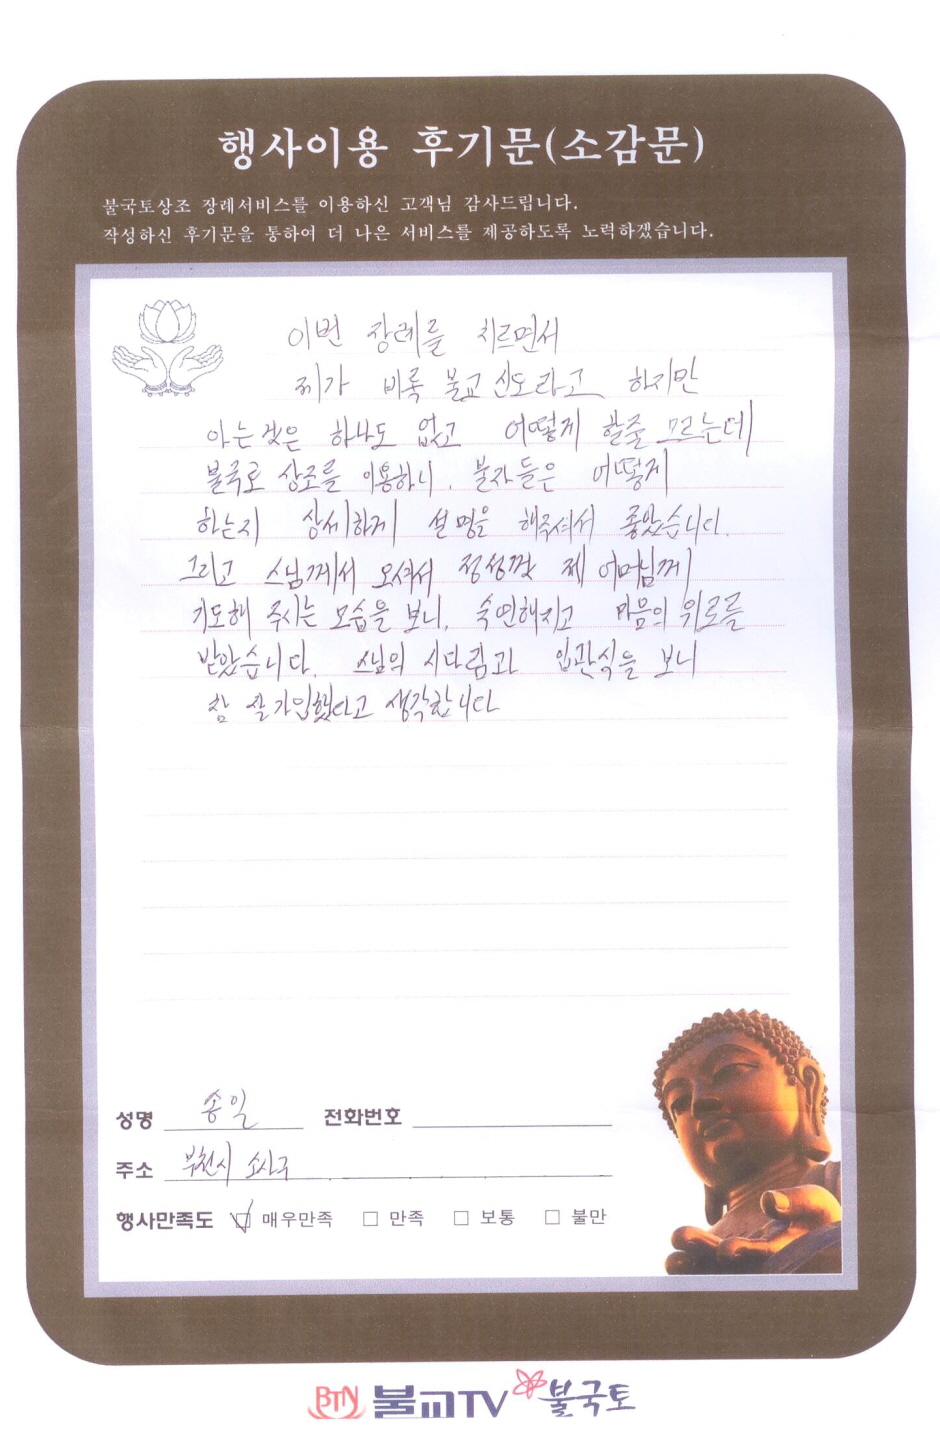 행사이용 후기문(소감문)
불국토상조 장례서비스를 이용하신 고객님 감사드립니다.
작성하신 후기문을 통하여 더 나은 서비스를 제공하도록 노력하겠습니다.
이번 장례를 치르면서
제가 비록 불교 신도라고 하지만
아는것은 하나도 없고 어떻게 할줄 모르는데
불국토 상조를 이용하니, 불자들은 어떻게
하는지 상세하게 설명을 해주셔서 좋았습니다.
그리고 스님께서 오셔서 정성껏 제 어머님께
기도해 주시는 모습을 보니, 숙연해지고 마음의 위로를
받았습니다. 스님의 시다림과 입관식을 보니
참 잘가입했다고 생각합니다
성명 송일 전화번호
주소 부천시 소사구
행사만족도 ☑ 매우만족 □ 만족 □ 보통 □ 불만
BTN 불교TV 불국토